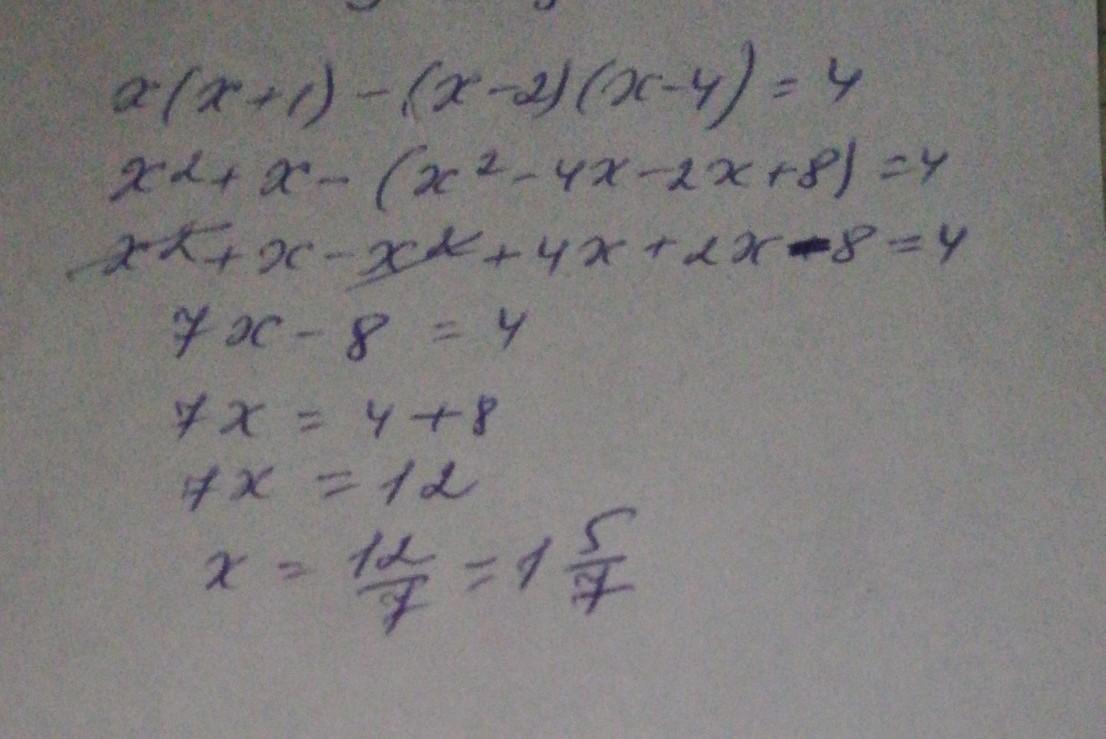 x(x+1)-(x-2)(x-4)=4
x²+x-(x²-4x-2x+8)=4
x²+x-x²+4x+2x-8=4
7x-8=4
7x=4+8
7x=12
x=12/7=1 5/7